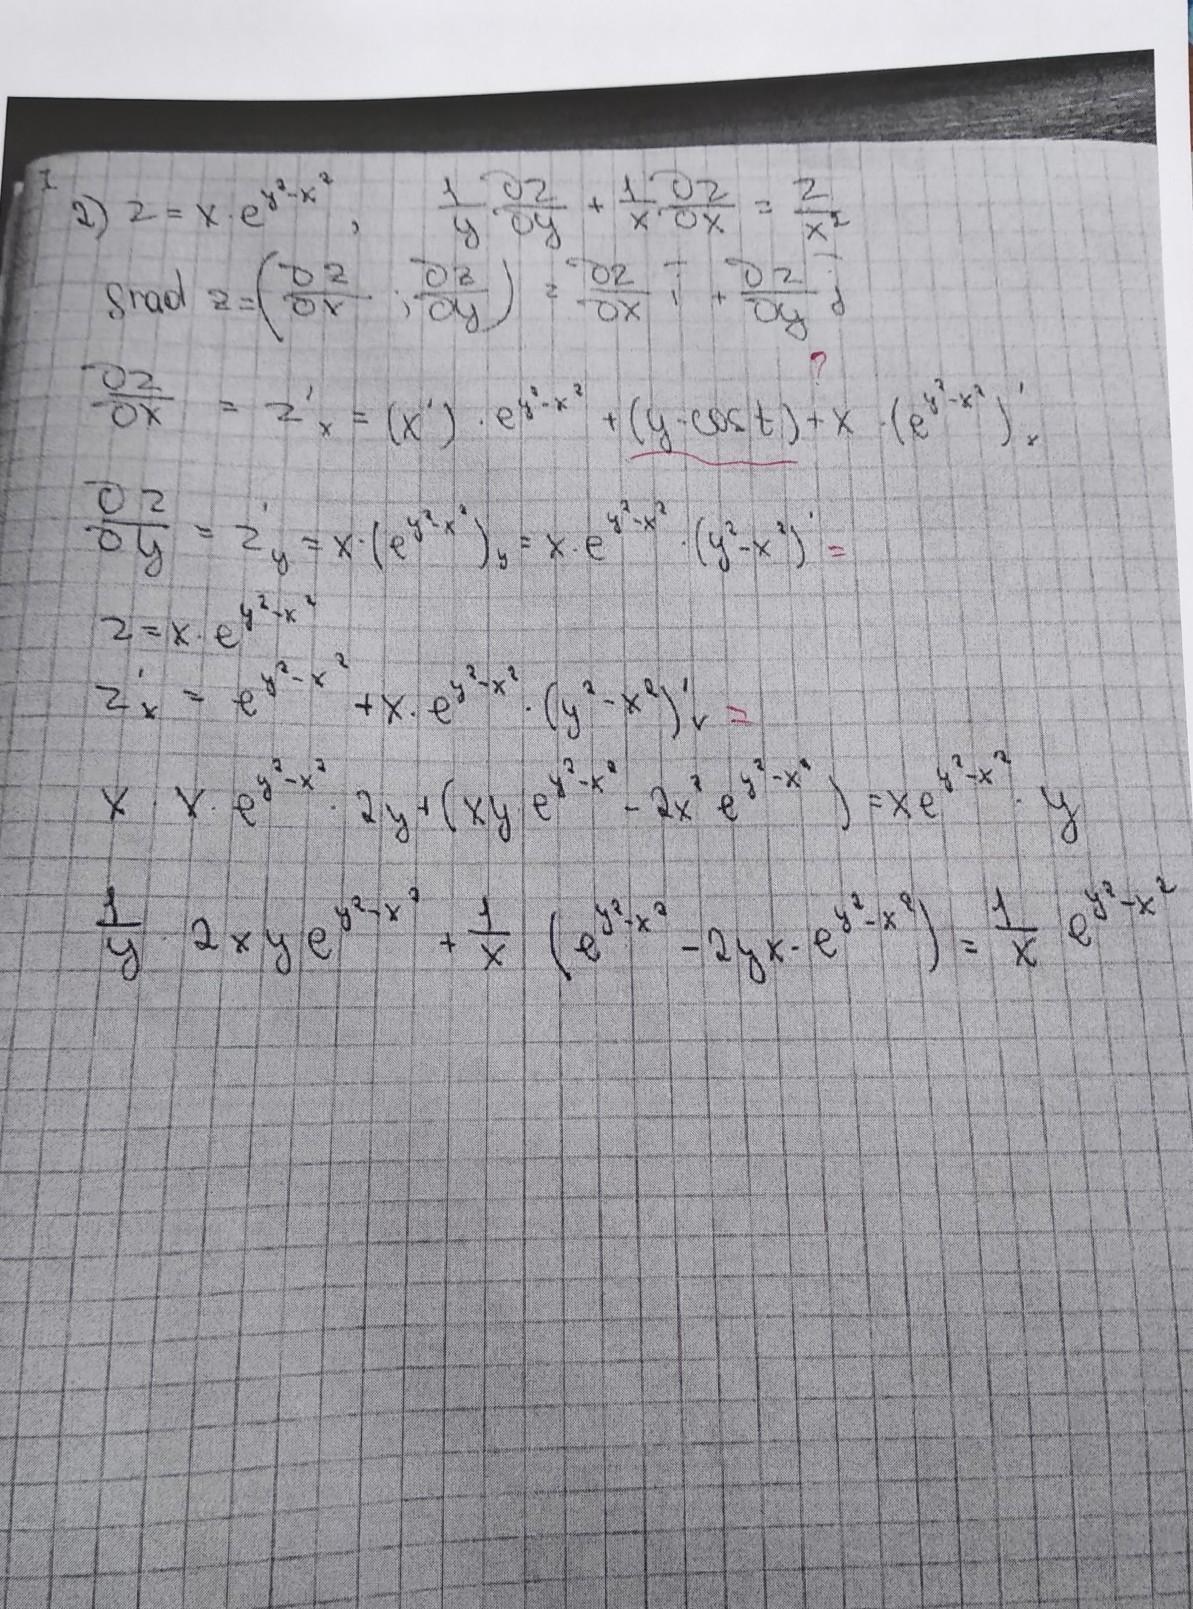 2) z = x · e^{y²-x²}, 1/y ∂z/∂y + 1/x ∂z/∂x = z/x²
grad z = (∂z/∂x ; ∂z/∂y) = ∂z/∂x i + ∂z/∂y j
?
∂z/∂x = z'ₓ = (x') · e^{y²-x²} + (y-cost) + x · (e^{y²-x²})'ₓ
∂z/∂y = z'_y = x · (e^{y²-x²})'_y = x · e^{y²-x²} · (y²-x²)' =
z = x · e^{y²-x²}
z'ₓ = e^{y²-x²} + x · e^{y²-x²} · (y²-x²)'ₓ =
x · x · e^{y²-x²} · 2y + (xy e^{y²-x²} - 2x² e^{y²-x²}) = x e^{y²-x²} · y
1/y · 2xy e^{y²-x²} + 1/x (e^{y²-x²} - 2yx · e^{y²-x²}) = 1/x e^{y²-x²}